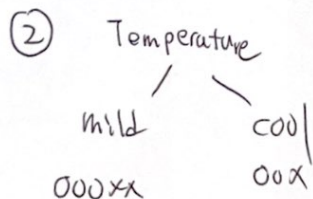 ② Temperature
mild cool
000xx 00x